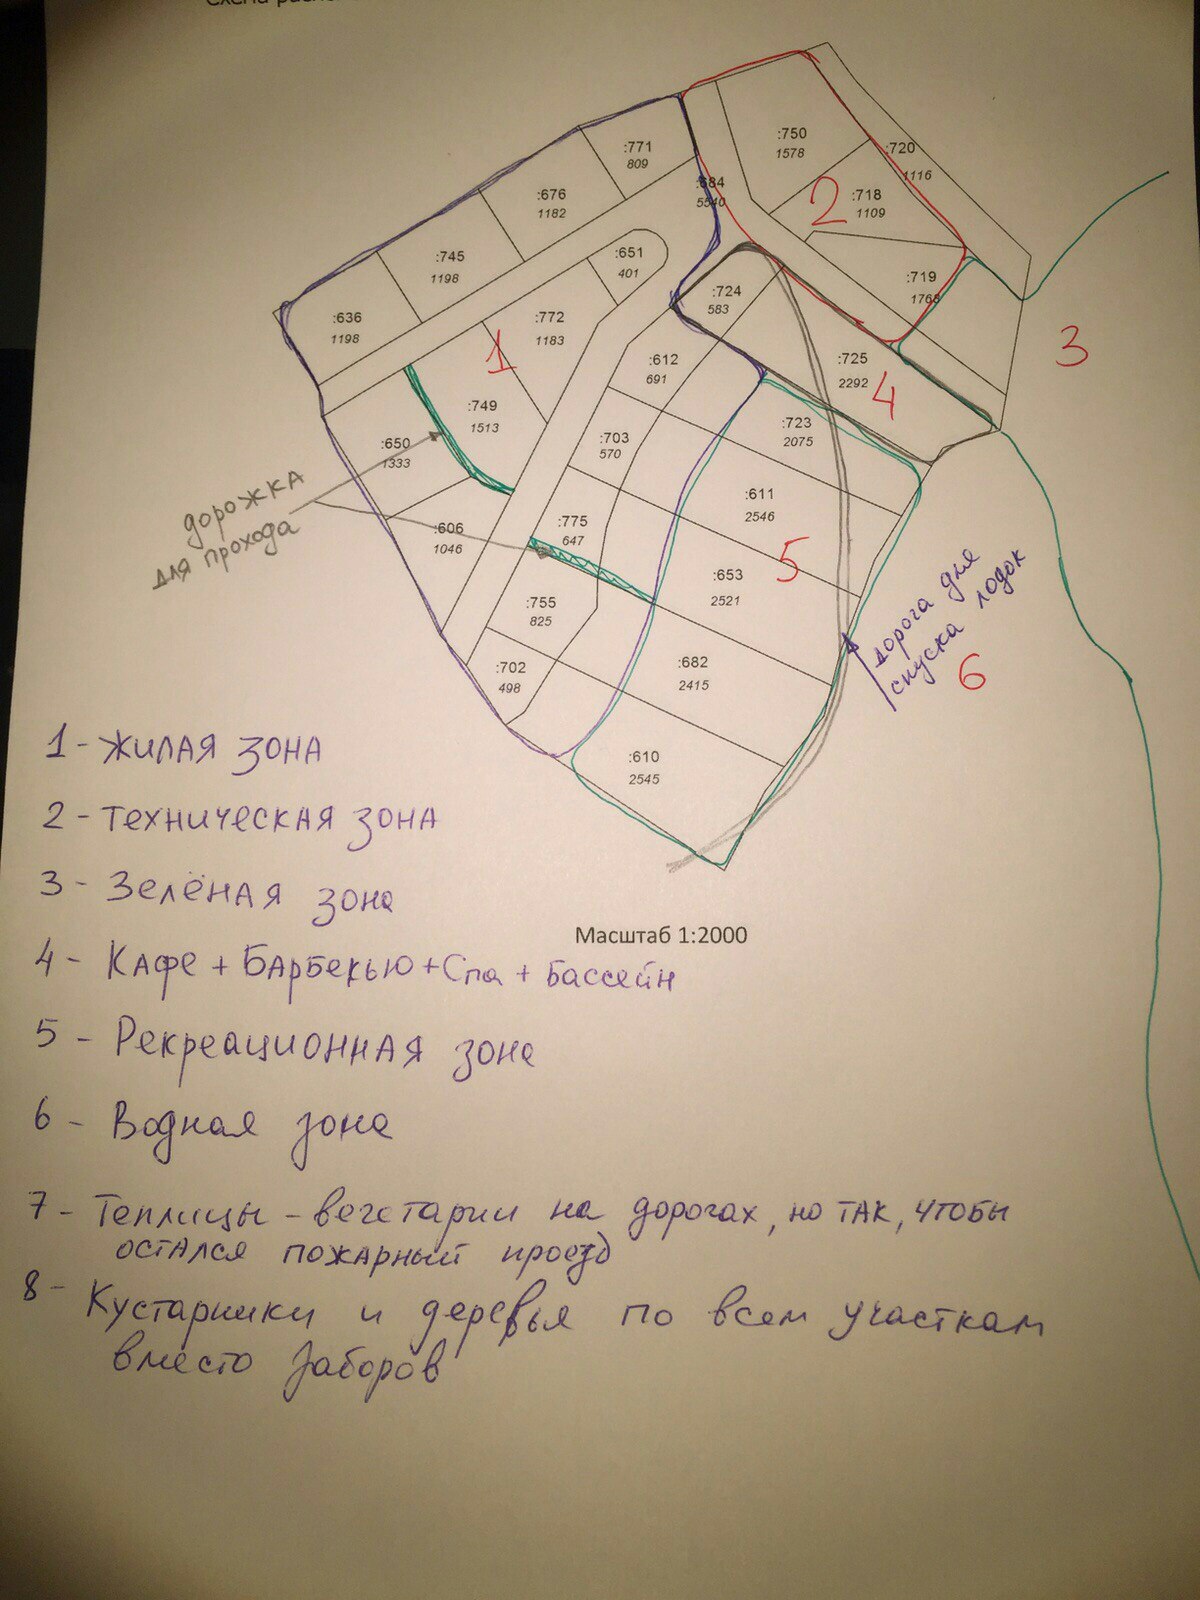 :750
1578
:771
809
:720
1116
:684
5540
:676
1182
2
:718
1109
:745
1198
:651
401
:719
1768
:724
583
:636
1198
:772
1183
1
3
:612
691
:725
2292
4
:749
1513
:723
2075
:650
1333
:703
570
дорожка
для прохода
:611
2546
:606
1046
:775
647
5
:653
2521
дорога для
спуска лодок
:755
825
:682
2415
6
:702
498
:610
2545
1 - жилая зона
2 - техническая зона
3 - Зелёная зона
Масштаб 1:2000
4 - Кафе + Барбекью + Спа + бассейн
5 - Рекреационная зона
6 - Водная зона
7 - Теплицы - вегетарии на дорогах, но так, чтобы
остался пожарный проезд
8 - Кустарники и деревья по всем участкам
вместо заборов